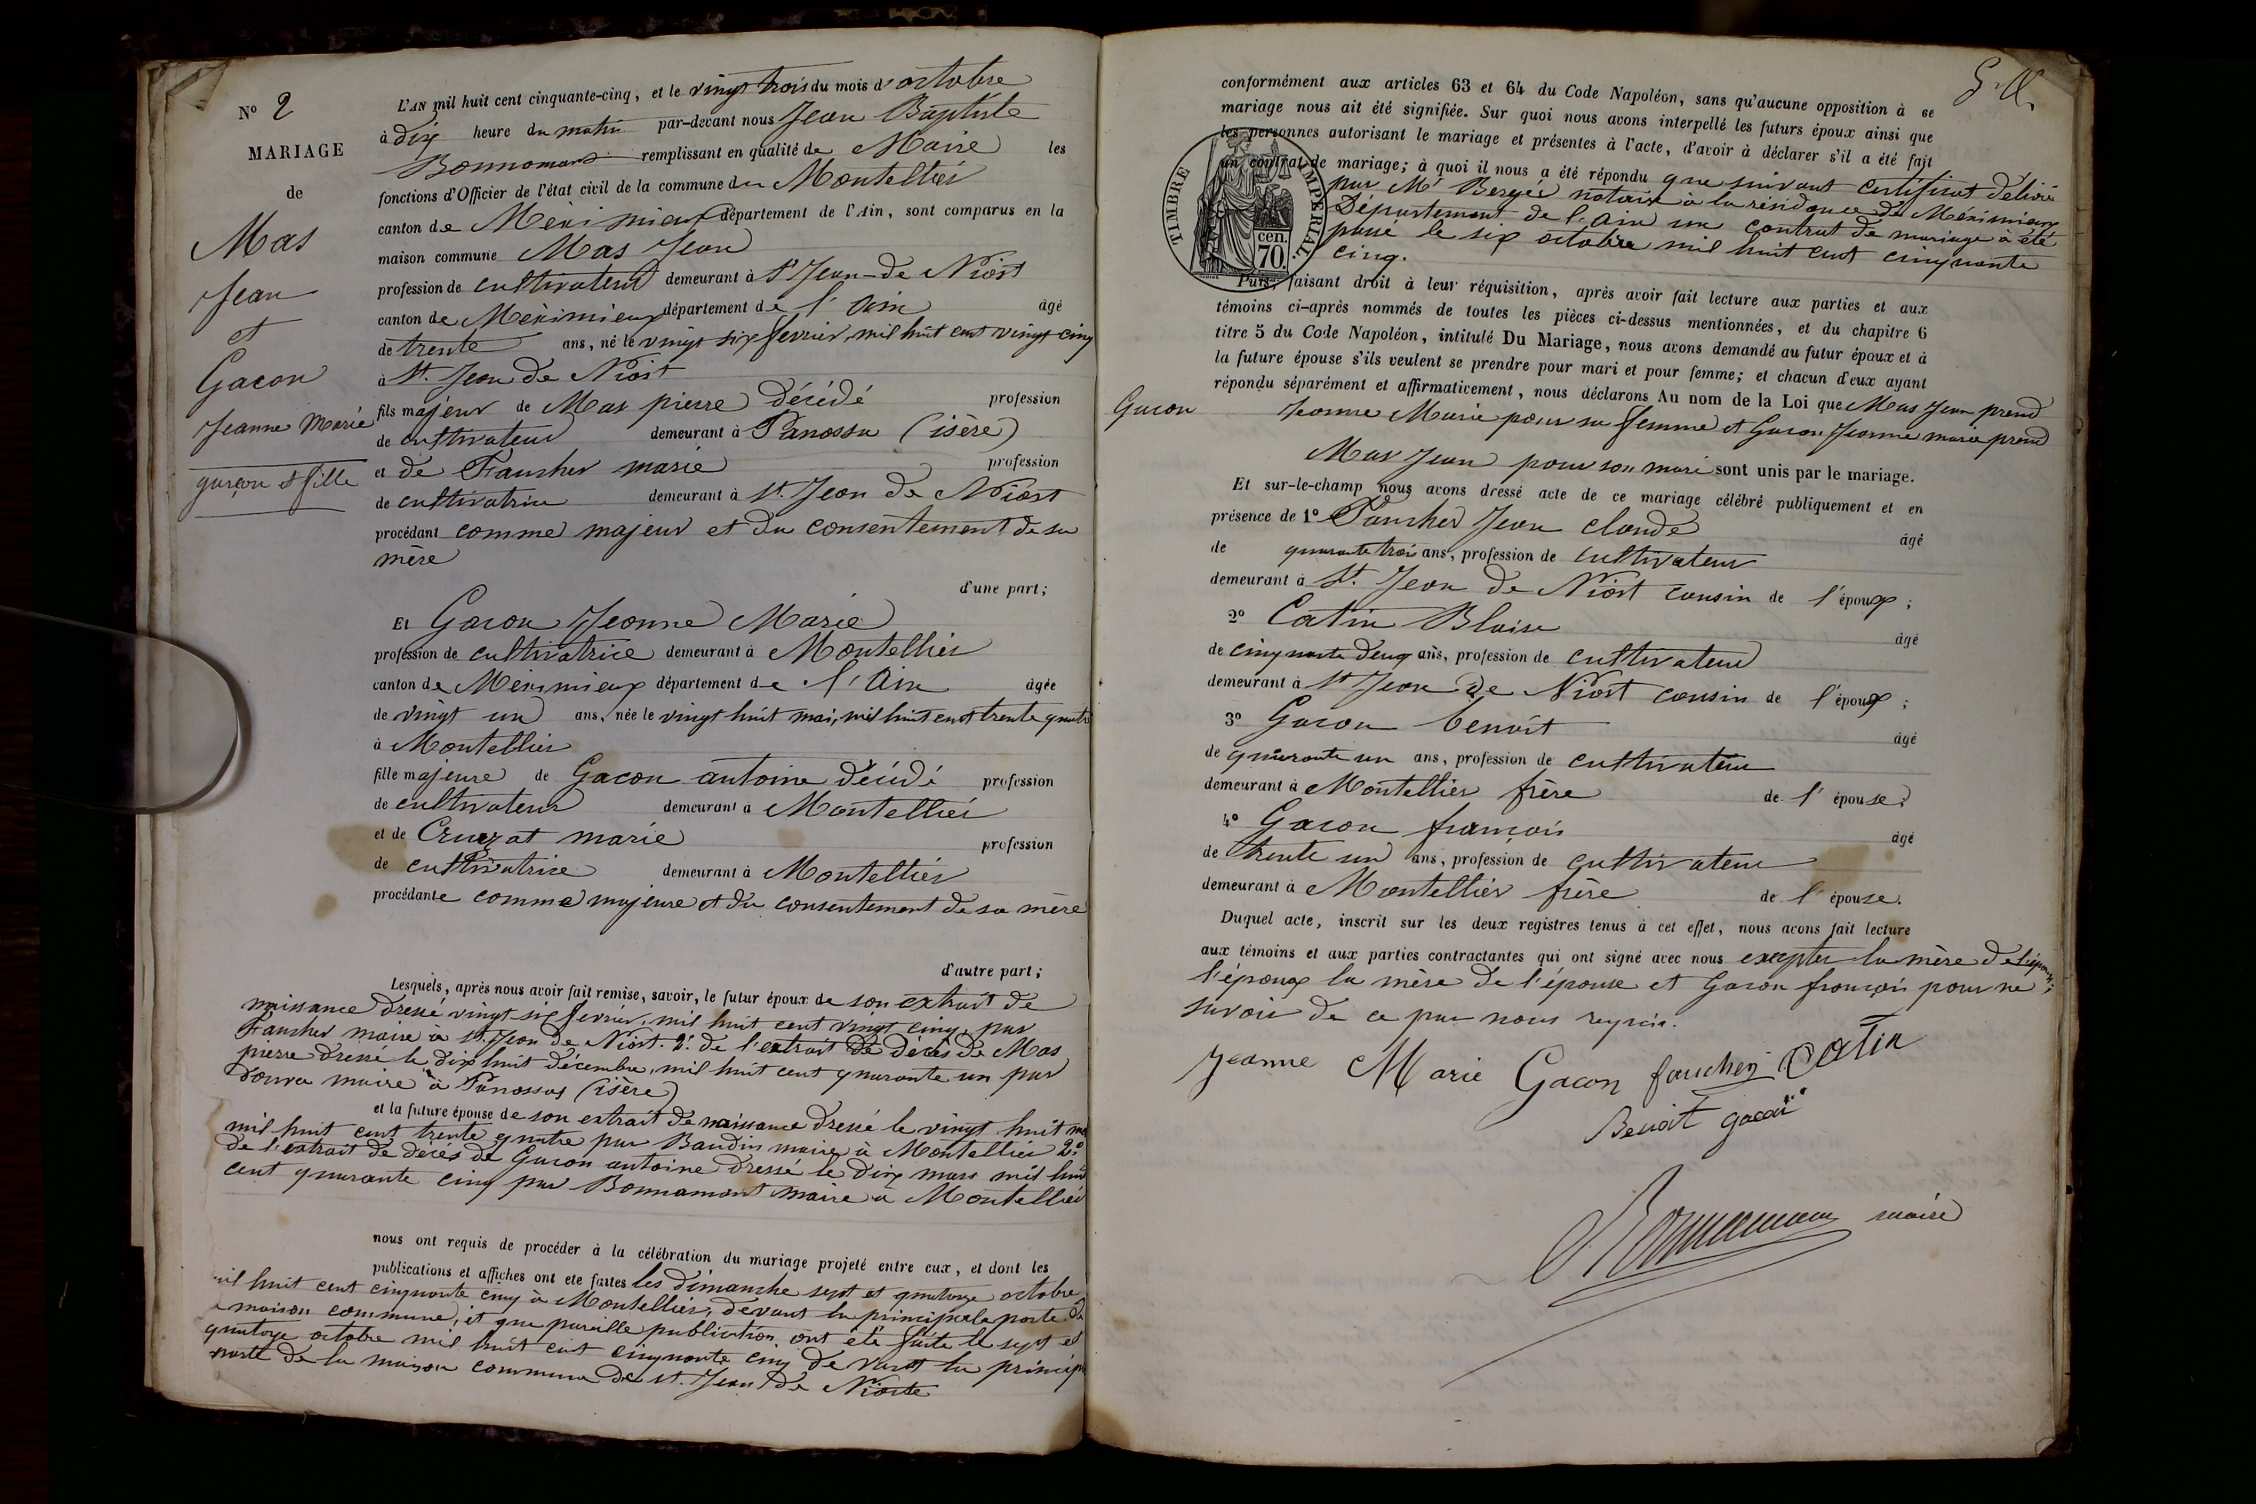 N° 2
MARIAGE
de
Mas
Jean
et
Gacon
Jeanne Marie
garçon et fille
L'AN mil huit cent cinquante-cinq, et le vingt trois du mois d'octobre
à dix heure du matin par-devant nous Jean Baptiste
Bonnamant remplissant en qualité de Maire les
fonctions d'Officier de l'état civil de la commune du Montellier
canton de Meximieux département de l'Ain, sont comparus en la
maison commune Mas Jean
profession de cultivateur demeurant à St Jean de Niost
canton de Méximieux département de l'Ain âgé
de trente ans, né le vingt six fevrier, mil huit cent vingt cinq
à St. Jean de Niost
fils majeur de Mas pierre décédé profession
de cultivateur demeurant à Panossa (isère)
et de Faucher marie profession
de cultivatrice demeurant à St. Jean de Niost
procédant comme majeur et du consentement de sa
mère
d'une part;
Et Gacon Jeanne Marie
profession de cultivatrice demeurant à Montellier
canton de Meximieux département de l'Ain âgée
de vingt un ans, née le vingt huit mai, mil huit cent trente quatre
à Montellier
fille majeure de Gacon antoine décédé profession
de cultivateur demeurant à Montellier
et de Cruzat marie profession
de cultivatrice demeurant à Montellier
procédante comme majeure et du consentement de sa mère
d'autre part;
Lesquels, après nous avoir fait remise, savoir, le futur époux de son extrait de
naissance dressé vingt six fevrier, mil huit cent vingt cinq, par
Faucher maire à St. Jean de Niost. 2° de l'extrait de décès de Mas
pierre dressé le dix huit décembre, mil huit cent quarante un par
maire à Panossas (isère)
et la future épouse de son extrait de naissance dressé le vingt huit mai
mil huit cent trente quatre par Baudin maire à Montellier 2°
de l'extrait de décès de Gacon antoine dressé le dix mars mil huit
cent quarante cinq par Bonnamant maire à Montellier
nous ont requis de procéder à la célébration du mariage projeté entre eux, et dont les
publications et affiches ont été faites les dimanche sept et quatorze octobre
mil huit cent cinquante cinq à Montellier, devant la principale porte de
la maison commune, et que pareille publication ont été faite le sept et
quatorze octobre mil huit cent cinquante cinq devant la principale
porte de la maison commune de St. Jean de Nioste
conformément aux articles 63 et 64 du Code Napoléon, sans qu'aucune opposition à ce
mariage nous ait été signifiée. Sur quoi nous avons interpellé les futurs époux ainsi que
les personnes autorisant le mariage et présentes à l'acte, d'avoir à déclarer s'il a été fait
un contrat de mariage; à quoi il nous a été répondu que suivant certificat délivré
par Me Bergée notaire à la résidence de Méximieux
Département de l'Ain un contrat de mariage à été
passé le six octobre mil huit cent cinquante
cinq.
TIMBRE IMPERIAL.
cen.
70
Puis, faisant droit à leur réquisition, après avoir fait lecture aux parties et aux
témoins ci-après nommés de toutes les pièces ci-dessus mentionnées, et du chapitre 6
titre 5 du Code Napoléon, intitulé Du Mariage, nous avons demandé au futur époux et à
la future épouse s'ils veulent se prendre pour mari et pour femme; et chacun d'eux ayant
répondu séparément et affirmativement, nous déclarons Au nom de la Loi que Mas Jean prend
Gacon Jeanne Marie pour sa femme et Gacon Jeanne marie prend
Mas Jean pour son mari sont unis par le mariage.
Et sur-le-champ nous avons dressé acte de ce mariage célébré publiquement et en
présence de 1° Faucher Jean claude âgé
de quarante trois ans, profession de cultivateur
demeurant à St. Jean de Niost cousin de l'époux;
2° Catin Blaise âgé
de cinquante deux ans, profession de cultivateur
demeurant à St Jean de Niost cousin de l'époux;
3° Gacon benoit âgé
de quarante un ans, profession de cultivateur
demeurant à Montellier frère de l'épouse;
4° Gacon françois âgé
de trente un ans, profession de cultivateur
demeurant à Montellier frère de l'épouse.
Duquel acte, inscrit sur les deux registres tenus à cet effet, nous avons fait lecture
aux témoins et aux parties contractantes qui ont signé avec nous excepter la mère de
l'époux la mère de l'épouse et Gacon françois pour ne
savoir de ce par nous requis.
Jeanne Marie Gacon fauchey Catin
Benoit gacon
Bonnamant maire